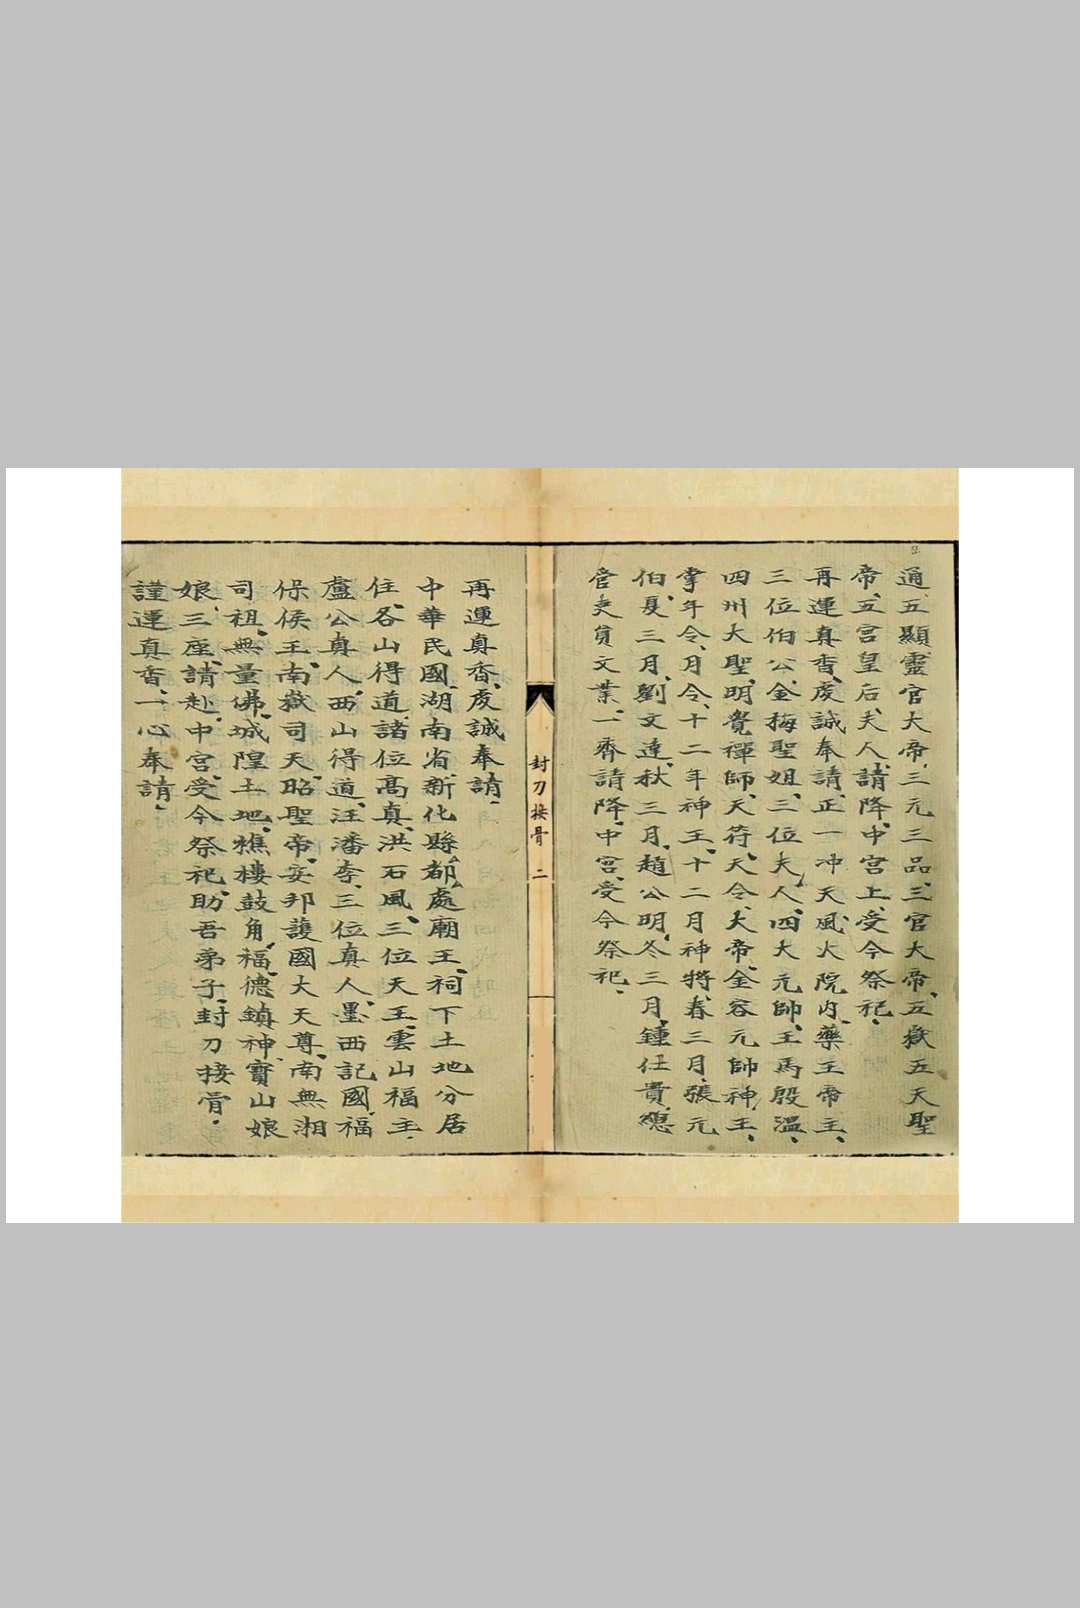 通、五顯靈官大帝、三元三品、三官大帝、五嶽五天聖
帝、五宮皇后夫人、請降中宮上、受今祭祀、
再運真香、虔誠奉請、正一冲天風火院內、藥王帝主、
三位伯公、金梅聖姐、三位夫人、四大元帥、王馬殷溫、
四州大聖、明覺禪師、天符天令、大帝、金容元帥神王、
掌年令、月令、十二年神王、十二月神將、春三月、張元
伯、夏三月、劉文達、秋三月、趙公明、冬三月、鍾仕貴、總
管吏貟文業、一齊請降、中宮、受今祭祀、
封刀接骨 二
再運真香、虔誠奉請、
中華民國、湖南省新化縣都、處廟王、祠下土地分居
住、各山得道、諸位高真、洪石風、三位天王、雲山福主、
盧公真人、西山得道、汪潘李、三位真人、墨西記國、福
保侯王、南嶽司天昭聖帝、安邦護國大天尊、南無湘
司祖、無量佛、城隍土地、樵樓鼓角、福德鎮神、寶山娘
娘、三座、請赴中宮、受今祭祀、助吾弟子、封刀接骨、
謹運真香、一心奉請、